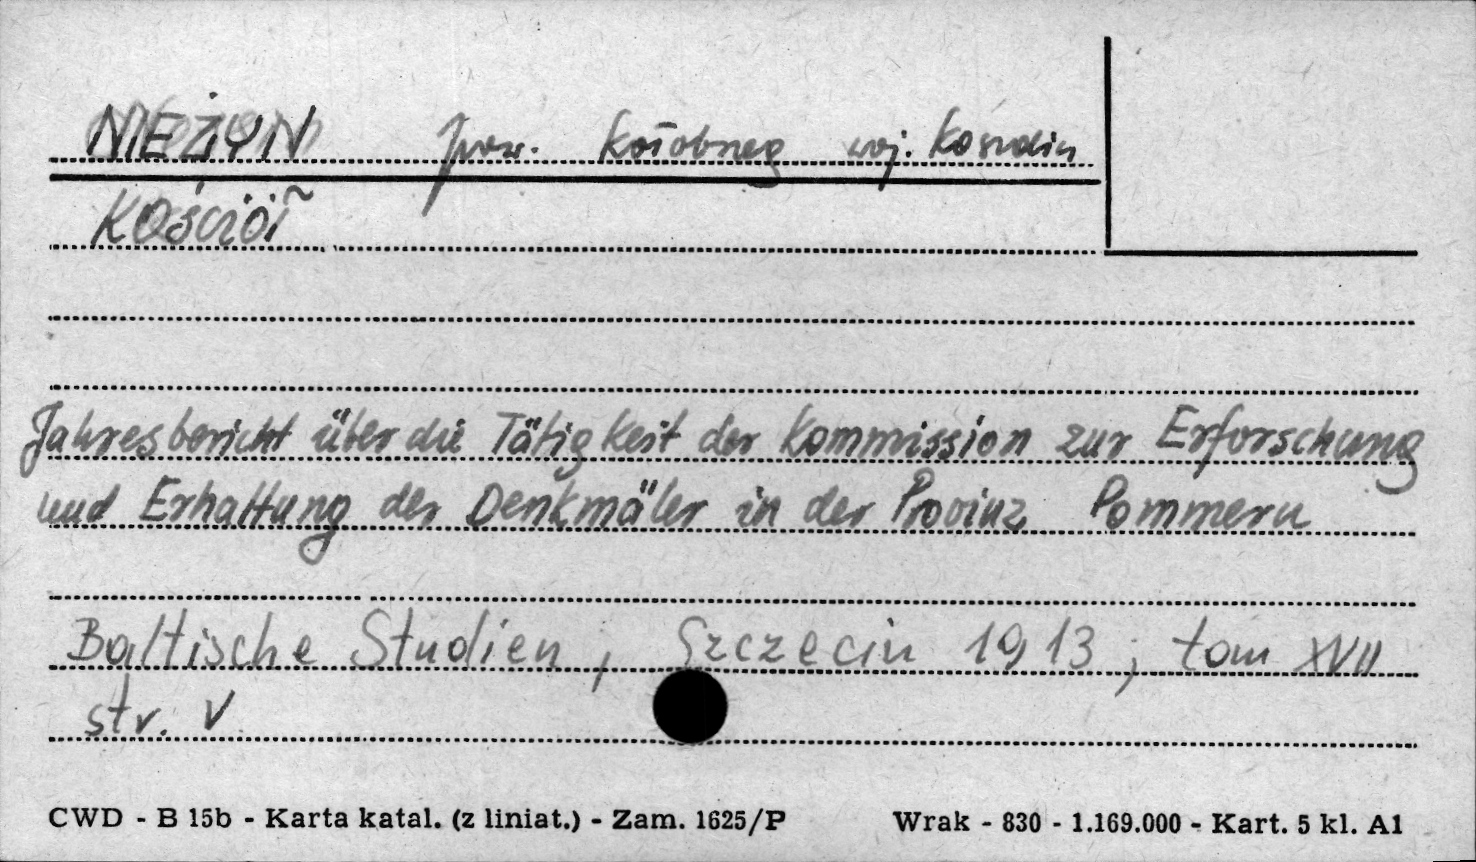 NIEŻYN pow. Kołobrzeg woj. Koszalin
Kościół
Jahresbericht über die Tätigkeit der Kommission zur Erforschung
und Erhaltung der Denkmäler in der Provinz Pommern
Baltische Studien, Szczecin 1913; tom XVII
str. V
CWD - B 15b - Karta katal. (z liniat.) - Zam. 1625/P Wrak - 830 - 1.169.000 - Kart. 5 kl. A1